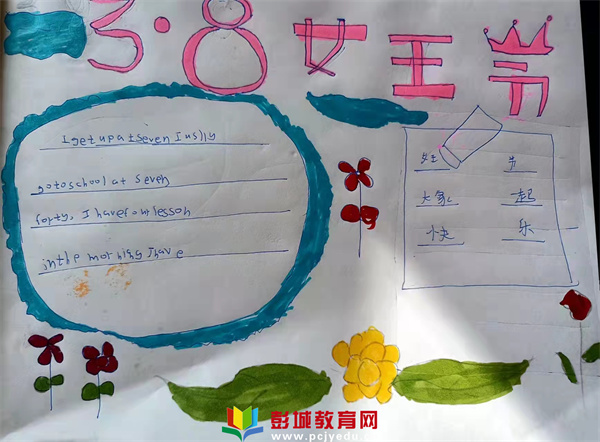 3·8女王节
I get up at seven I uslly
go to school at seven
forty. I have four lesson
in the morning I have
女王 节
大家 一起
快 乐
彭城教育网
www.pcjyedu.